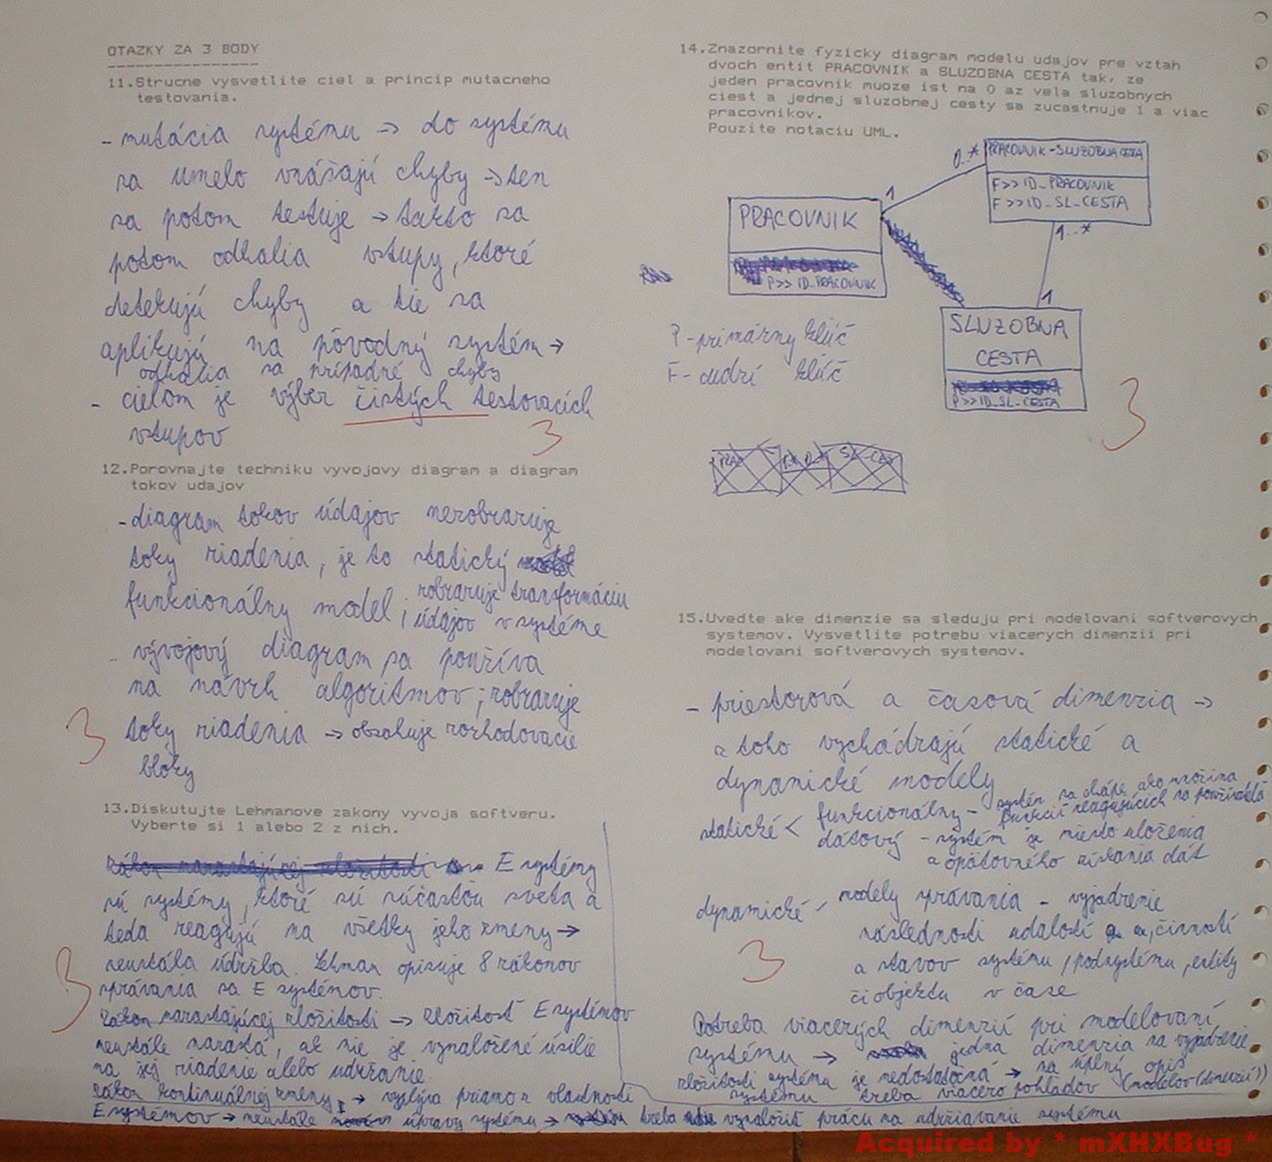 OTAZKY ZA 3 BODY
11.Strucne vysvetlite ciel a princip mutacneho
testovania.
- mutácia systému -> do systému
sa umelo vnášajú chyby -> ten
sa potom testuje -> takto sa
potom odhalia vstupy, ktoré
detekujú chyby a tie sa
aplikujú na pôvodný systém ->
odhalia sa prípadné chyby
- cielom je výber čistých testovacích
vstupov
3
12.Porovnajte techniku vyvojovy diagram a diagram
tokov udajov
- diagram tokov údajov nezobrazuje
toky riadenia, je to statický
funkcionálny model; zobrazuje transformáciu
údajov v systéme
- vývojový diagram sa používa
na návrh algoritmov; zobrazuje
toky riadenia -> obsahuje rozhodovacie
bloky
3
13.Diskutujte Lehmanove zakony vyvoja softveru.
Vyberte si 1 alebo 2 z nich.
E systémy
sú systémy, ktoré sú súčasťou sveta a
teda reagujú na všetky jeho zmeny ->
neustála údržba. Lehman opisuje 8 zákonov
správania sa E systémov.
Zákon narastajúcej zložitosti -> zložitosť E systémov
neustále narastá, ak nie je vynaložené úsilie
na jej riadenie alebo udržanie.
Zákon kontinuálnej zmeny -> vyplýva priamo z vlastnosti
E systémov -> neustále úpravy systému -> treba vynaložiť prácu na udržiavanie systému
3
14.Znazornite fyzicky diagram modelu udajov pre vztah
dvoch entit PRACOVNIK a SLUZOBNA CESTA tak, ze
jeden pracovnik muoze ist na 0 az vela sluzobnych
ciest a jednej sluzobnej cesty sa zucastnuje 1 a viac
pracovnikov.
Pouzite notaciu UML.
PRACOVNIK-SLUZOBNA CESTA
F>> ID_PRACOVNIK
F>> ID_SL_CESTA
0..*
1
PRACOVNIK
P>> ID_PRACOVNIK
1..*
1
SLUZOBNA
CESTA
P>>ID_SL_CESTA
P - primárny kľúč
F - cudzí kľúč
3
15.Uvedte ake dimenzie sa sleduju pri modelovani softverovych
systemov. Vysvetlite potrebu viacerych dimenzii pri
modelovani softverovych systemov.
- priestorová a časová dimenzia ->
z toho vychádzajú statické a
dynamické modely
statické < funkcionálny - systém sa chápe ako množina
funkcií reagujúcich na používateľa
dátový - systém je miesto uloženia
a opätovného získania dát
dynamické - modely správania - vyjadrenie
následnosti udalostí, činností
a stavov systému, podsystému, entity
či objektu v čase
3
Potreba viacerých dimenzií pri modelovaní
systému -> jedna dimenzia na vyjadrenie
zložitosti systému je nedostatočná -> na úplný opis
systému treba viacero pohľadov (modelov (dimenzií))
Acquired by * mXHXBug *